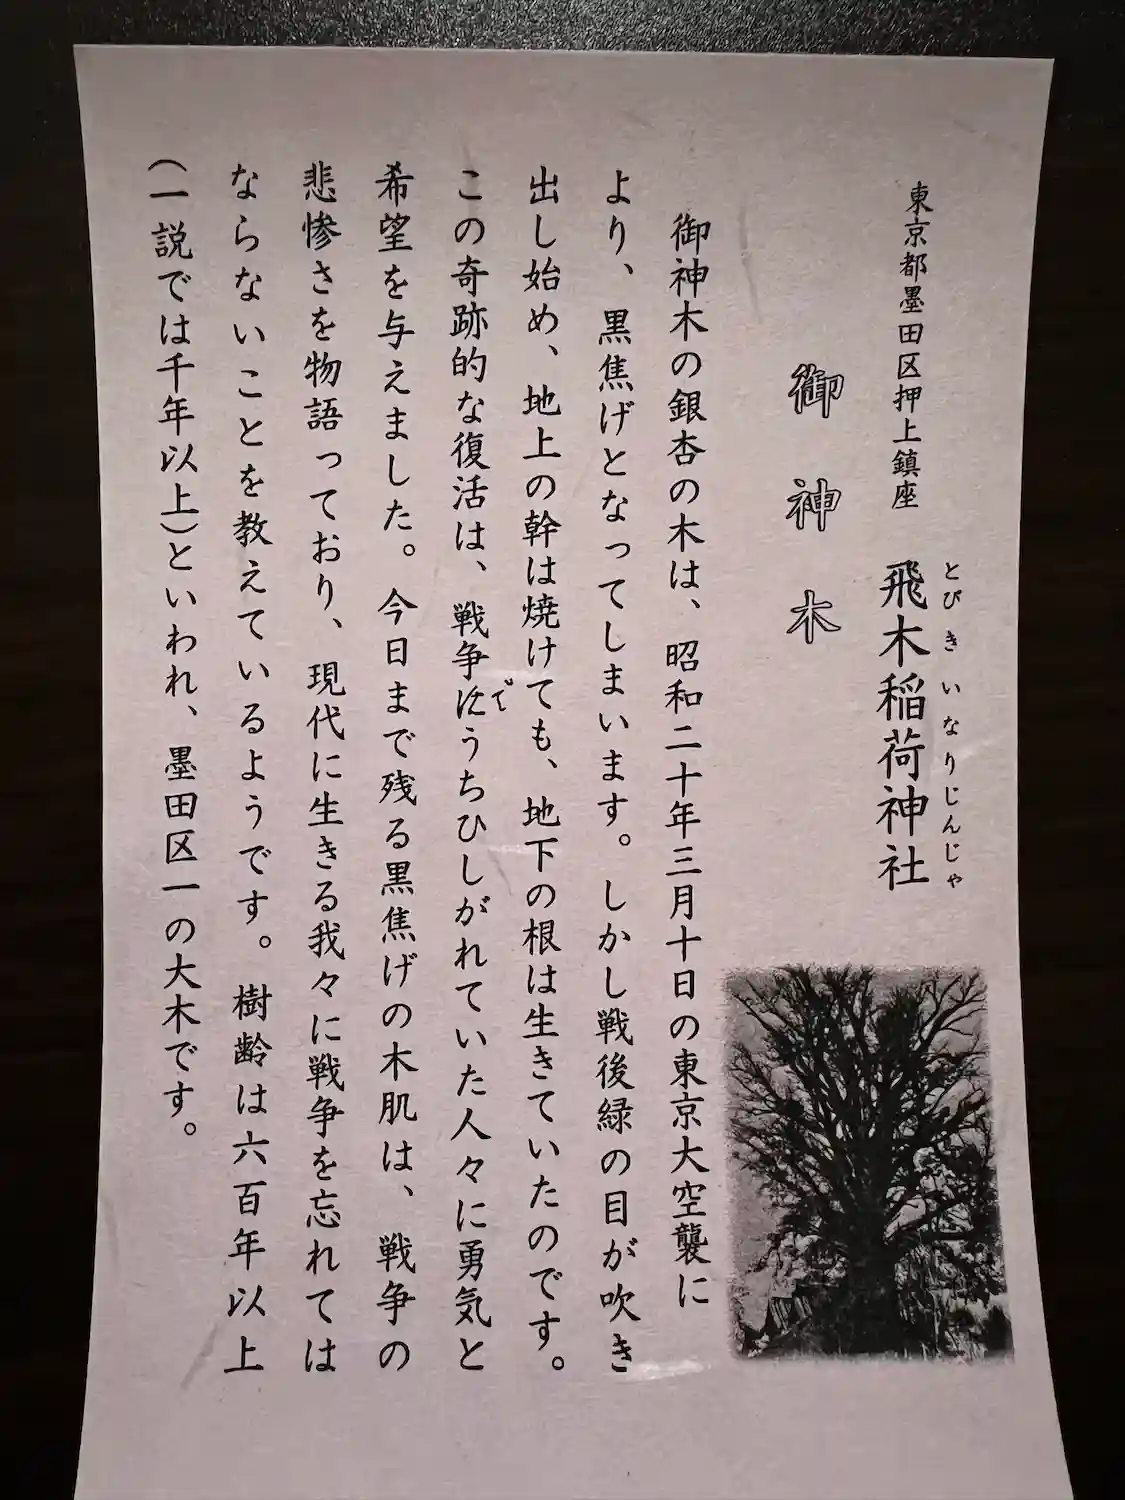 東京都墨田区押上鎮座 飛木稲荷神社
とびきいなりじんじゃ
御神木
御神木の銀杏の木は、昭和二十年三月十日の東京大空襲に
より、黒焦げとなってしまいます。しかし戦後緑の目が吹き
出し始め、地上の幹は焼けても、地下の根は生きていたのです。
この奇跡的な復活は、戦争でうちひしがれていた人々に勇気と
希望を与えました。今日まで残る黒焦げの木肌は、戦争の
悲惨さを物語っており、現代に生きる我々に戦争を忘れては
ならないことを教えているようです。樹齢は六百年以上
(一説では千年以上)といわれ、墨田区一の大木です。